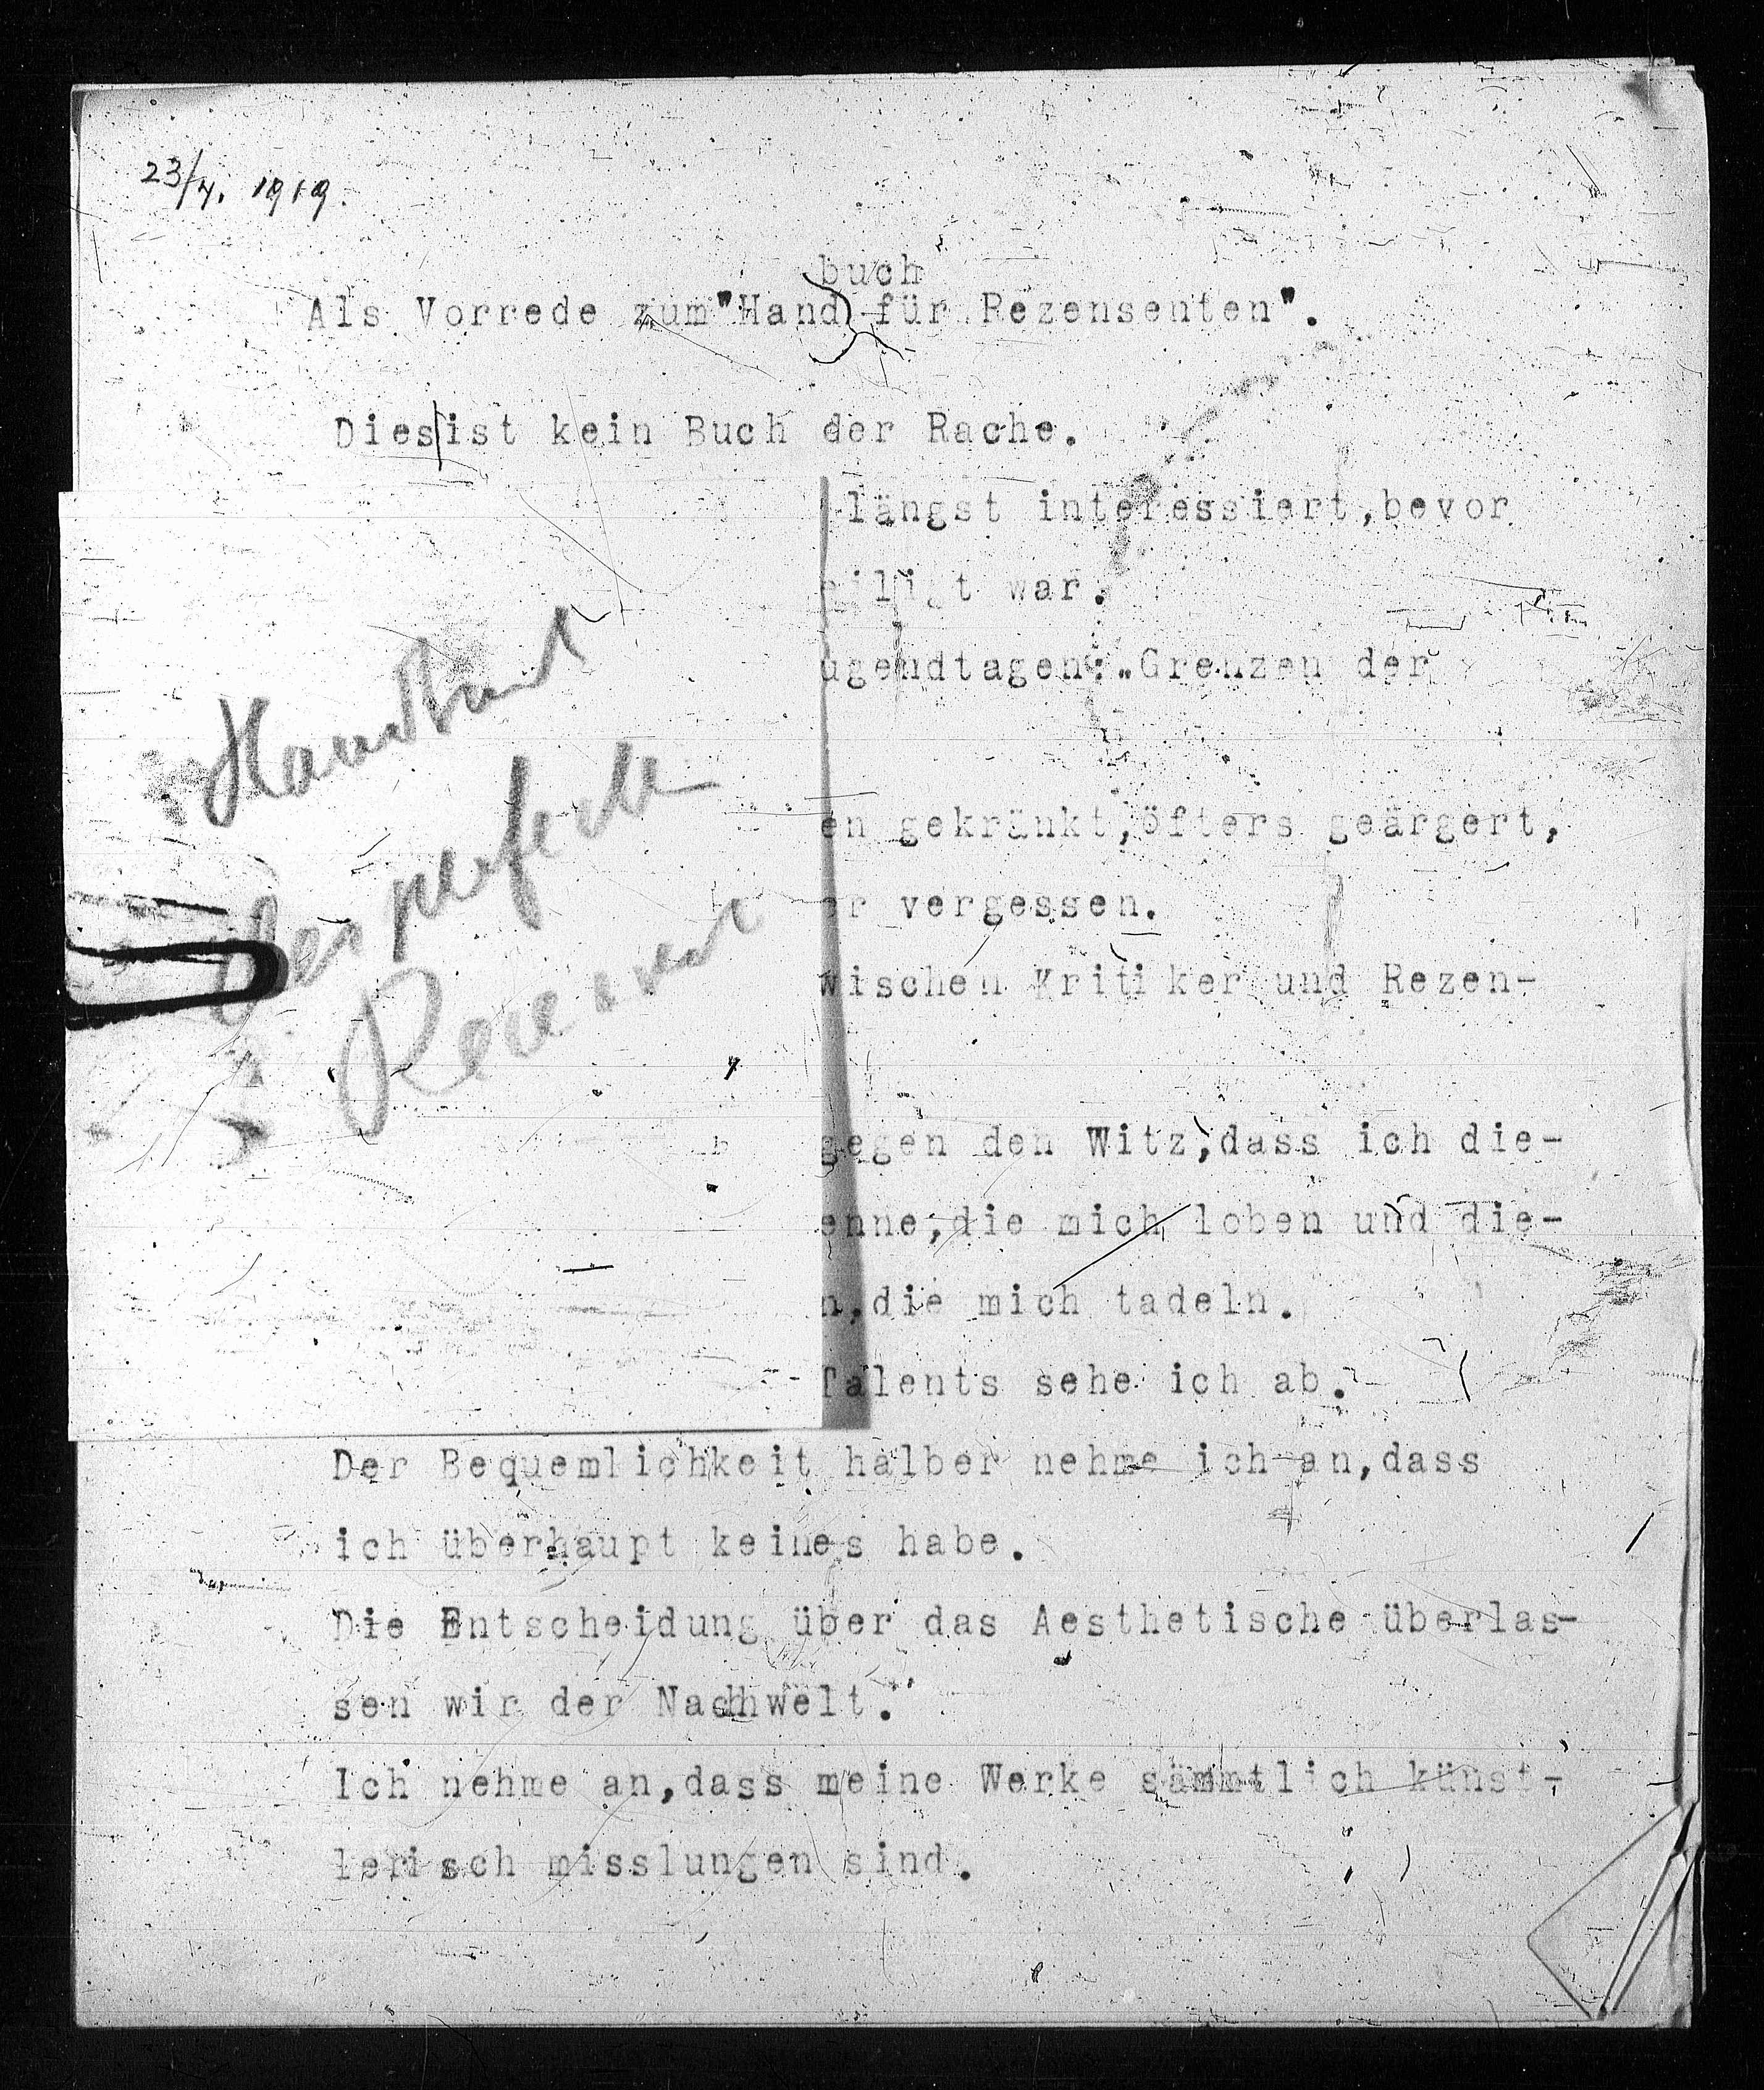 23/4. 1919.
buch
Als Vorrede zum "Hand für Rezensenten".
Dies ist kein Buch der Rache.
längst interessiert, bevor
iligt war.
ugendtagen: „Grenzen der
en gekränkt, öfters geärgert,
er vergessen.
wischen Kritiker und Rezen-
gegen den Witz, dass ich die-
enne, die mich loben und die-
n, die mich tadeln.
Talents sehe ich ab.
Der Bequemlichkeit halber nehme ich an, dass
ich überhaupt keines habe.
Die Entscheidung über das Aesthetische überlas-
sen wir der Nachwelt.
Ich nehme an, dass meine Werke sämmtlich künst-
lerisch misslungen sind.
Der perfecte